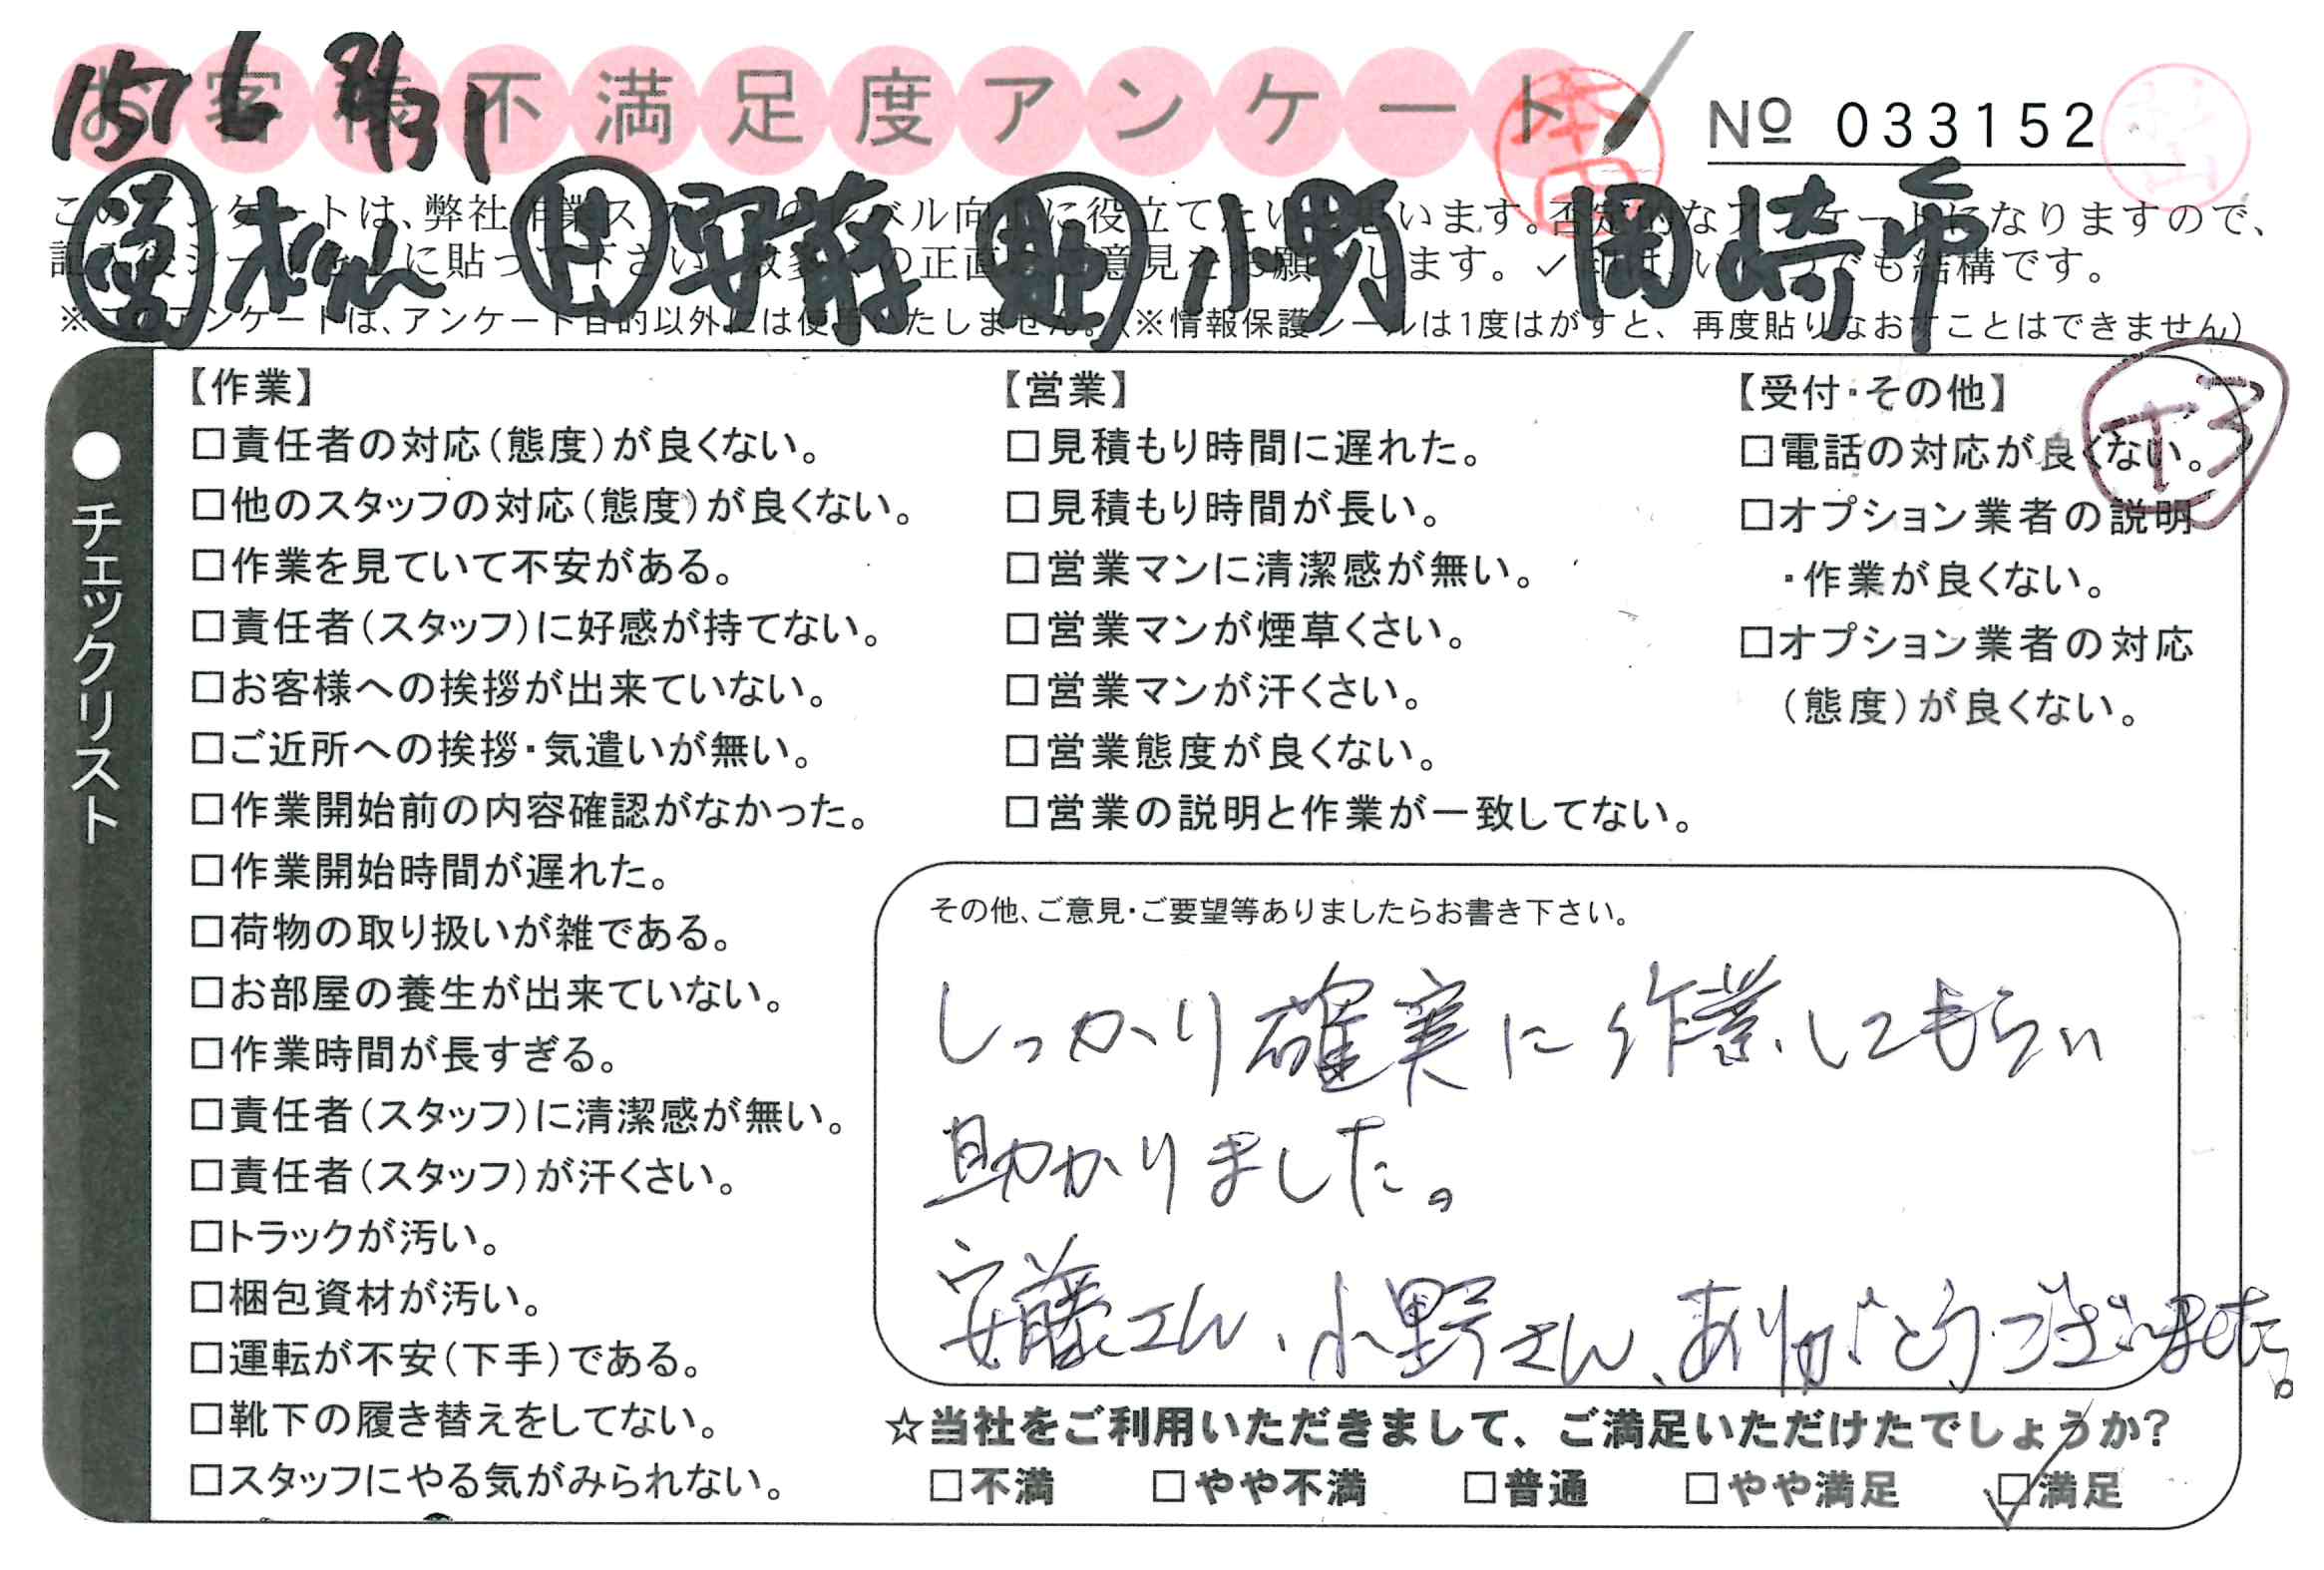 お客様不満足度アンケート
1576 8/31
本田
№ 033152
営 松山 社 安藤 助 小野 岡崎市
このアンケートは、弊社作業スタッフのレベル向上に役立てたいと思います。否定的なアンケートになりますので、
に貼って下さい。の正直意見をお願いします。✓印はいくつでも結構です。
※このアンケートは、アンケート目的以外には使用いたしません。(※情報保護シールは1度はがすと、再度貼りなおすことはできません)
+3
●チェックリスト
【作業】
□責任者の対応(態度)が良くない。
□他のスタッフの対応(態度)が良くない。
□作業を見ていて不安がある。
□責任者(スタッフ)に好感が持てない。
□お客様への挨拶が出来ていない。
□ご近所への挨拶・気遣いが無い。
□作業開始前の内容確認がなかった。
□作業開始時間が遅れた。
□荷物の取り扱いが雑である。
□お部屋の養生が出来ていない。
□作業時間が長すぎる。
□責任者(スタッフ)に清潔感が無い。
□責任者(スタッフ)が汗くさい。
□トラックが汚い。
□梱包資材が汚い。
□運転が不安(下手)である。
□靴下の履き替えをしてない。
□スタッフにやる気がみられない。
【営業】
□見積もり時間に遅れた。
□見積もり時間が長い。
□営業マンに清潔感が無い。
□営業マンが煙草くさい。
□営業マンが汗くさい。
□営業態度が良くない。
□営業の説明と作業が一致してない。
【受付・その他】
□電話の対応が良くない。
□オプション業者の説明
・作業が良くない。
□オプション業者の対応
(態度)が良くない。
その他、ご意見・ご要望等ありましたらお書き下さい。
しっかり確実に作業してもらい
助かりました。
安藤さん、小野さん、ありがとうございました。
☆当社をご利用いただきまして、ご満足いただけたでしょうか?
□不満 □やや不満 □普通 □やや満足 ☑満足